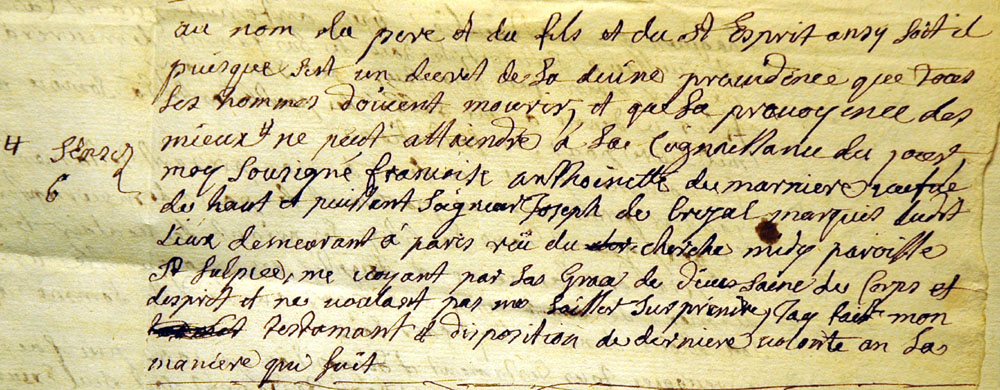 au nom du pere et du fils et du St Esprit ansy soit il
puisque sest un decret de la divine providence que tous
les hommes doivent mourir, et que la provoyence des
mieux ne peut attaindre a la Cognoissance du jour,
moy Sousigné francoise anthoinette de marniere veufue
de haut et puissant Saigneur Joseph de brezal marquis dudit
Lieux demeurant a paris rüe du cherche midy paroisse
St Sulpice, me voyant par la Grace de dieu Saine de Corps et
desprit et ne voulant pas me laisser Surprendre, Jay fait mon
testamant et disposition de derniere volonte an la
maniere qui suit
6